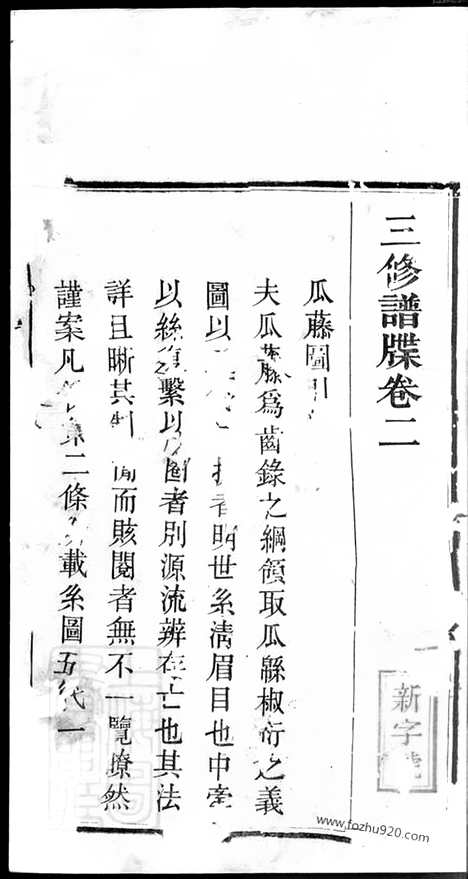 三修譜牒卷二
瓜藤圖引
夫瓜藤爲齒錄之綱領取瓜緜椒衍之義
圖以者明世系清眉目也中牽
以絲繫以圈者别源流辨存亡也其法
詳且晰其備而賅閱者無不一覽瞭然
謹案凡第二條載系圖五代一
新字號
www.fozhu920.com